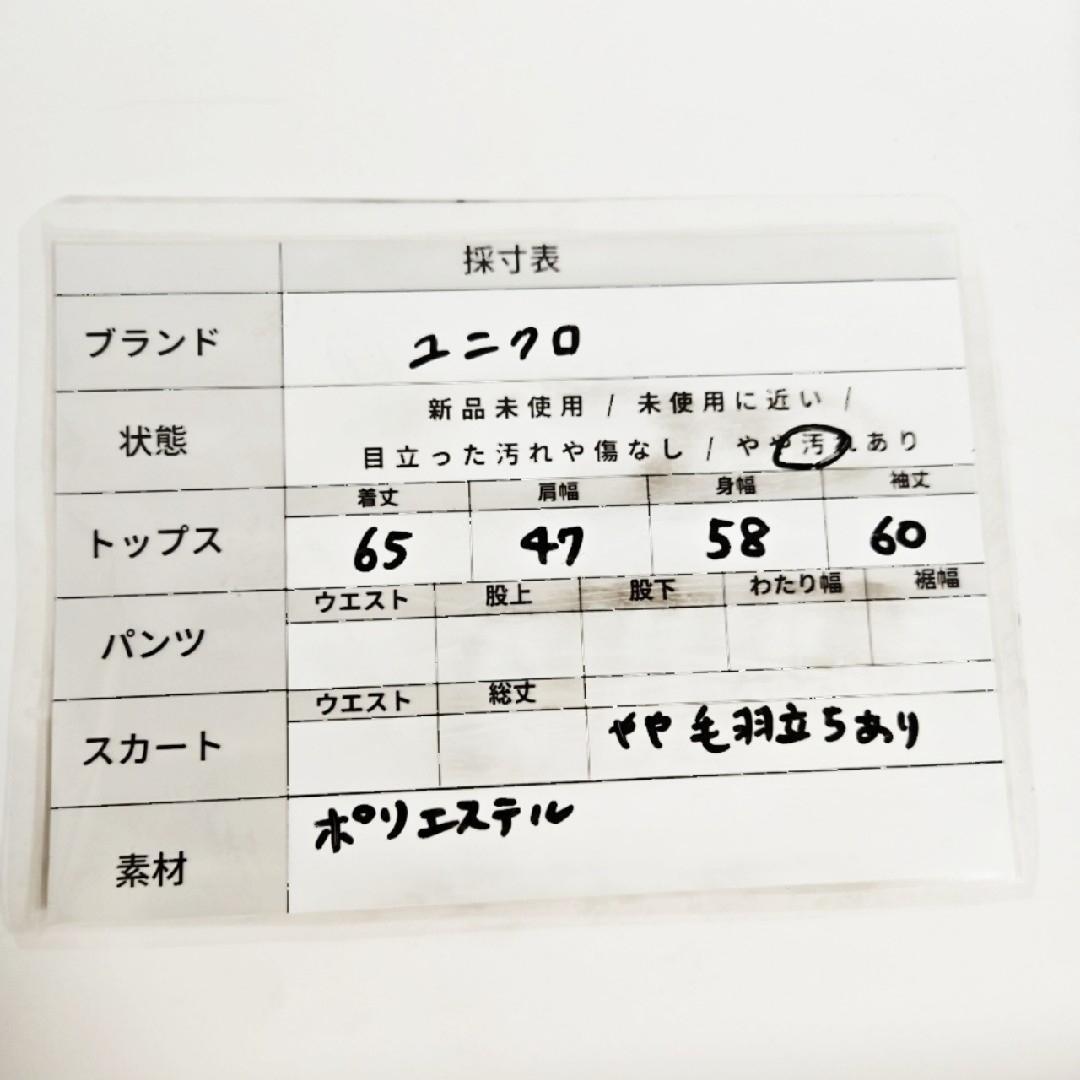 採寸表
ブランド
ユニクロ
状態
新品未使用 / 未使用に近い /
目立った汚れや傷なし / やや汚れあり
トップス
着丈 肩幅 身幅 袖丈
65 47 58 60
パンツ
ウエスト 股上 股下 わたり幅 裾幅
スカート
ウエスト 総丈
やや毛羽立ちあり
素材
ポリエステル